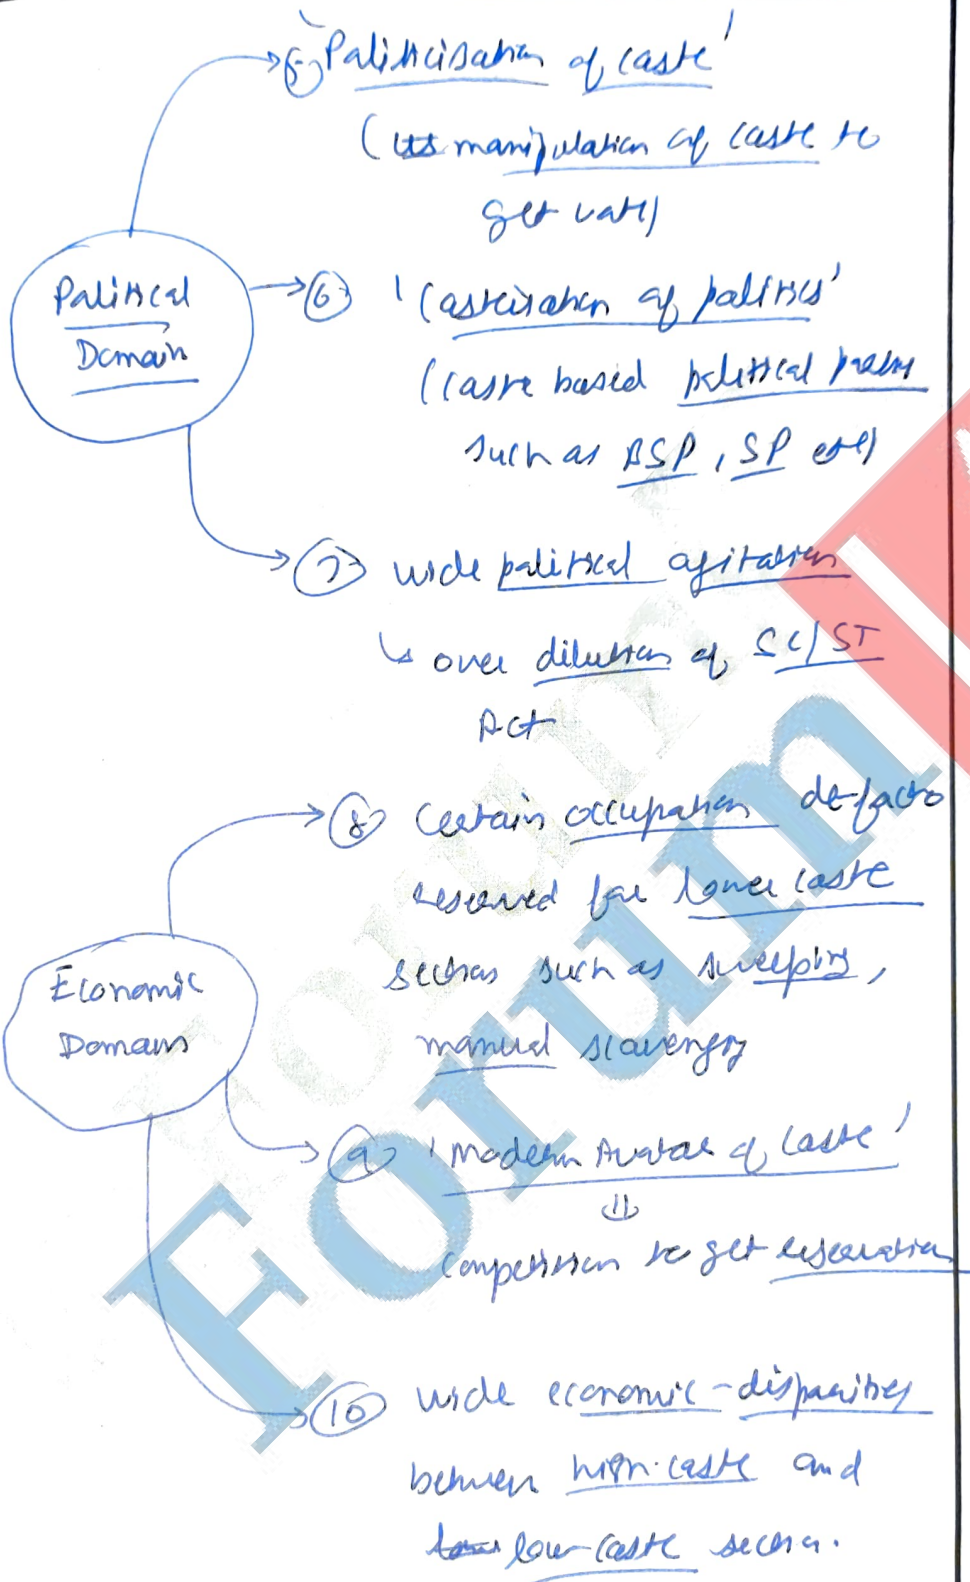 5 'Politicisation of caste'
(manipulation of caste to
get vote)
Political
Domain
6 'Casteisation of politics'
(caste based political parties
such as BSP, SP etc)
7 wide political agitation
↳ over dilution of SC/ST
Act
8 Certain occupation de-facto
reserved for lower caste
sections such as sweeping,
manual scavenging
Economic
Domain
9 'Modern Avatar of Caste'
⇓
Competition to get reservation
10 wide economic-disparities
between high-caste and
low-caste section.
Forum